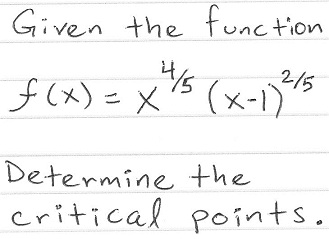 Given the function
f(x) = x^4/5 (x-1)^2/5
Determine the
critical points.